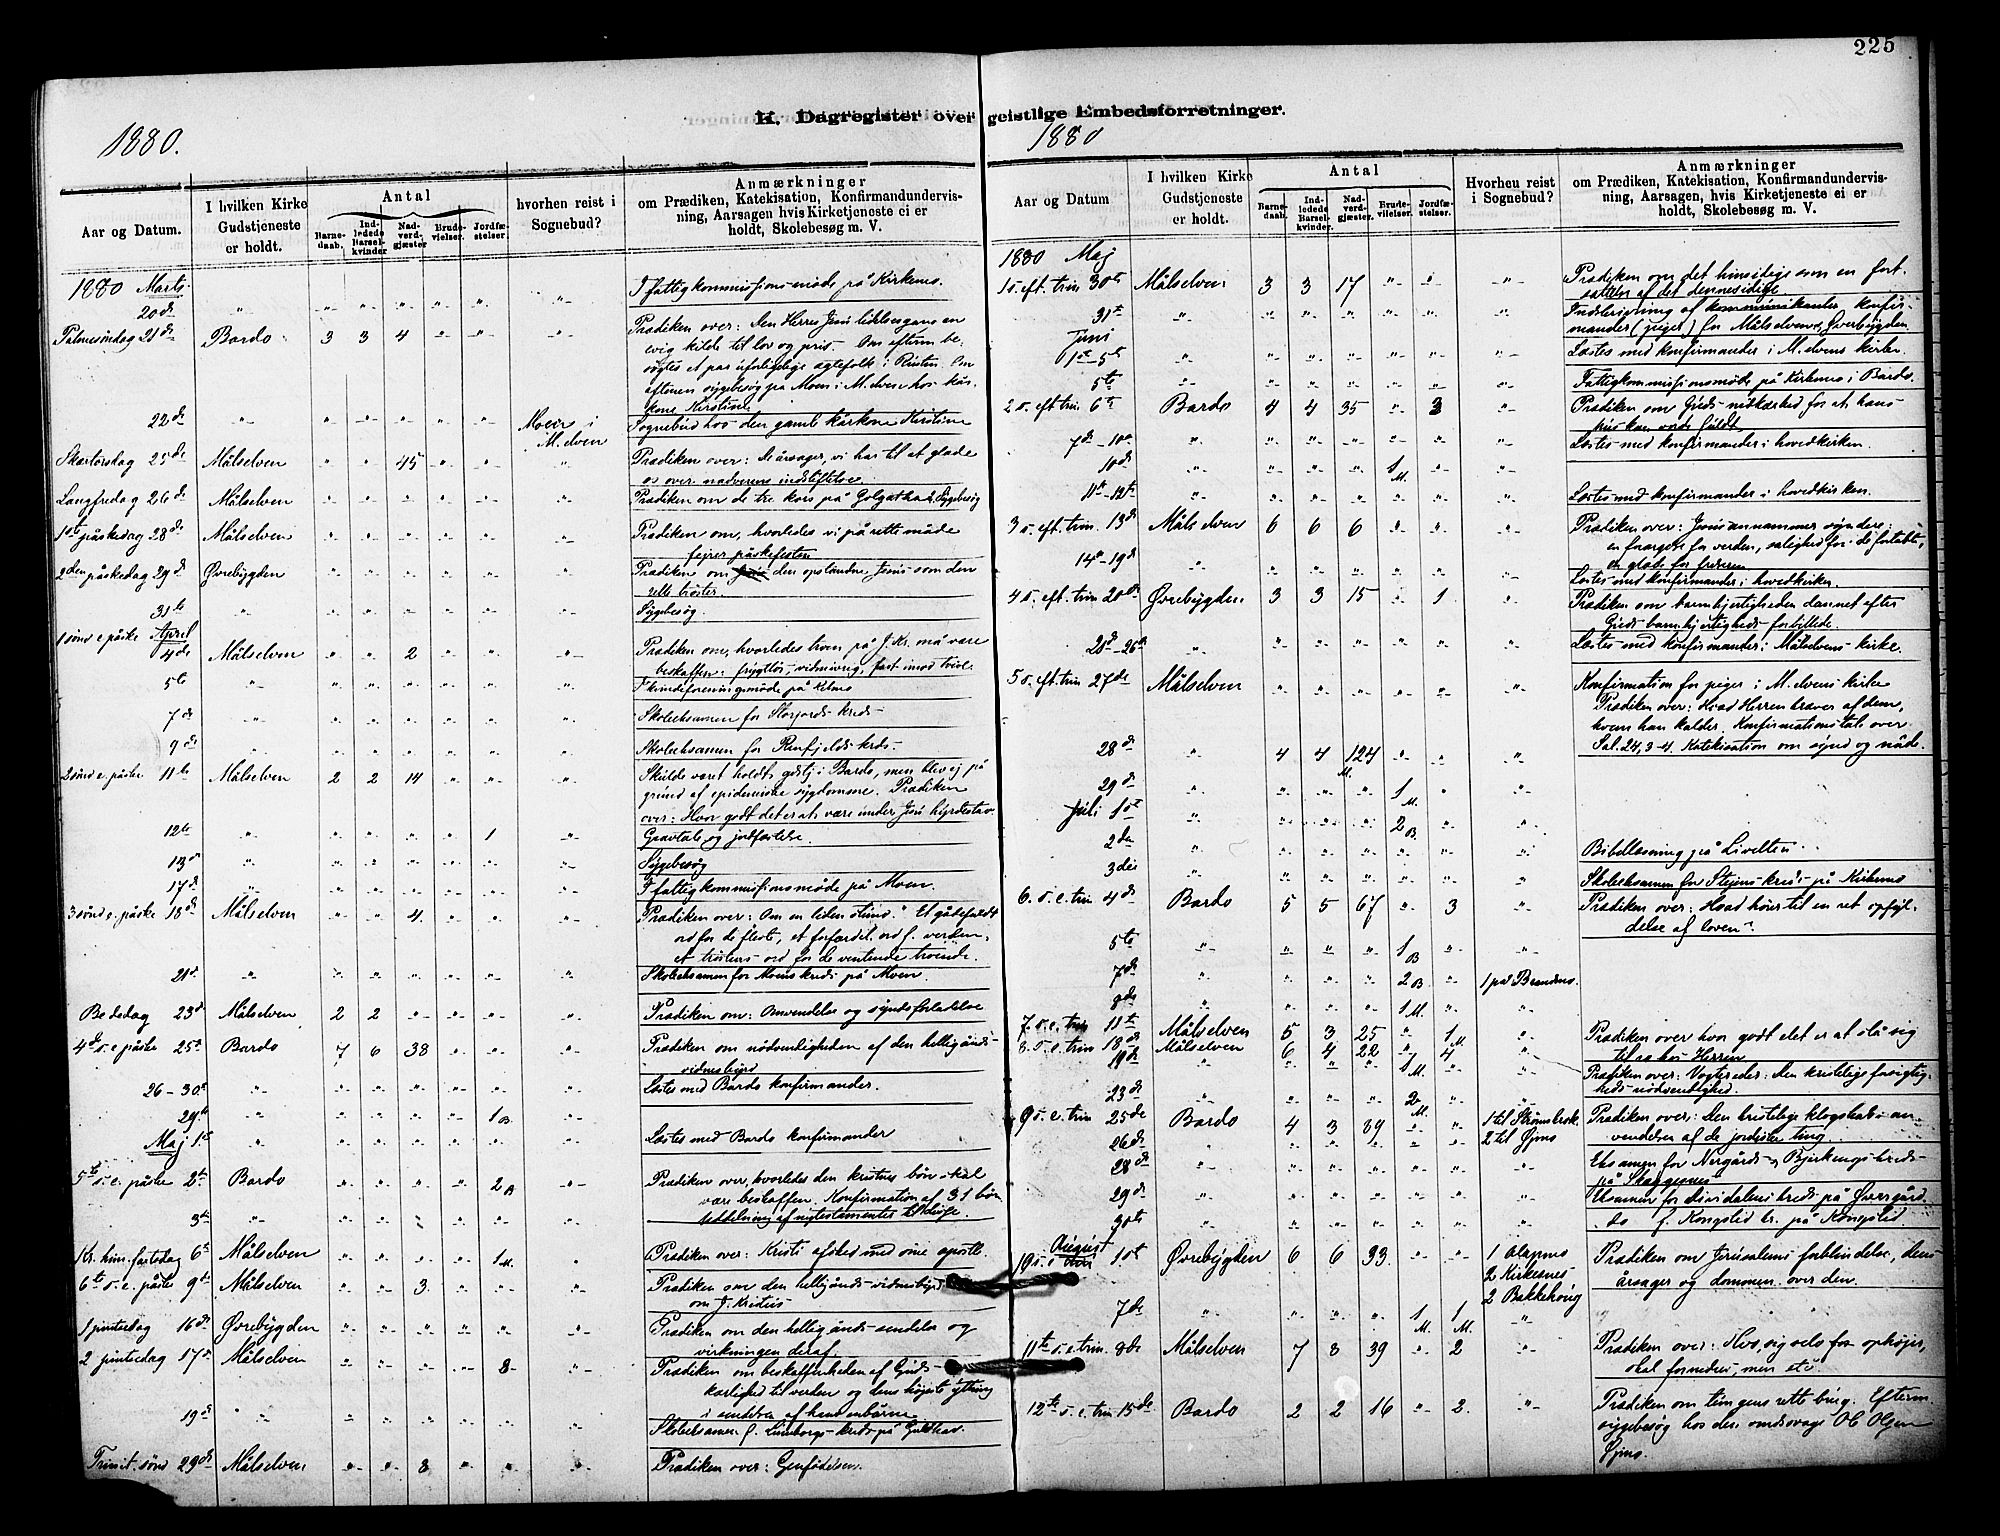 225
K. Dagregister over geistlige Embedsforretninger.
1880.
Aar og Datum.
I hvilken Kirke Gudstjeneste er holdt.
Antal
Barnedaab.
Indledede Barselkvinder
Nadverdgjæster
Brudevielser.
Jordfæstelser.
hvorhen reist i Sognebud?
Anmærkninger
om Prædiken, Katekisation, Konfirmandundervisning, Aarsagen hvis Kirketjeneste ei er holdt, Skolebesøg m. V.
1880 Marts
20de I fattigkommissionsmøde på Kirkemo.
Palmesøndag 21de Bardo 3 3 4 Prædiken over: Den Herres Jesu lidelsesgang en
evig kilde til lov og pris. Om efterm. be-
søgtes et par uforligelige ægtefolk i
aftenen sygebesøg på Moen i M.elven hos kår-
kone Kirstine
22de Moen i M.elven Sognebud hos den gamle kårkone Kirstine
Skærtorsdag 25de Målselven 45 Prædiken over: De årsager, vi har til at glæde
os over nadverens indstiftelse
Langfredag 26de Målselven Prædiken om de tre kors på Golgatha & Sygebesøg
1ste påskedag 28de Målselven Prædiken om, hvorledes vi på rette måde
fejrer påskefesten
2den påskedag 29de Øvrebygden Prædiken om den opstandne Jesus som den
rette trøster
31te Sygebesøg.
1 sønd e. påske April 4de Målselven 2 Prædiken om, hvorledes troen på J. Kr. må være
beskaffen: frygtløs, fast imod tvivl
5te
7de Skoleeksamen for Storjords kreds
9de Skoleeksamen for Rønfjelds kreds
2 sønd e. påske 11te Målselven 2 2 14 Skulde været holdt gdstj i Bardo, men blev ej på
grund af epidemiske sygdomme. Prædiken
over: Hvor godt det er at være under Jesu hyrdestav
12te 1 Gravtale og jordfæstelse.
13de Sygebesøg
17de I fattigkommissionsmøde på Moen.
3 sønd e. påske 18de Målselven 4 Prædiken over: Om en liden stund. Et gådefuldt
ord for de fleste, et forfærdel. ord f. verden,
et trøstens ord for de ventende troende.
21de Skoleeksamen for Moens kreds på Moen
Bededag 23de Målselven 2 2 Prædiken om: Omvendelse og syndsforladelse
4de s. e. påske 25te Bardo 7 6 38 Prædiken om nødvendigheden af den helligånds
vidnesbyrd
26 – 30te Læstes med Bardo konfirmander.
29de 1 B.
Maj 1ste Læstes med Bardo konfirmander
5te s. e. påske 2den Bardo 2 B Prædiken over, hvorledes den kristnes bøn skal
være beskaffen. Konfirmation af 31 børn
3die Uddeling af nytestamenter
Kr. him. fartsdag 6te Målselven 1 M. Prædiken over: Kristi afsked med sine apostle.
6te s. e. påske 9de Målselven 3. Prædiken om den helligånds vidnesbyrd
om J. Kristus
1 pintsedag 16de Øvrebygden Prædiken om den helligånds sendelse og
virkningen deraf
2 pintsedag 17de Målselven 8 Prædiken om beskaffenheden af Guds
kærlighed til verden og dens højeste ytring
i sendelse af hans enbårne
19de Skoleeksamen f. kreds på
Trinit. sønd 23de Målselven 8 Prædiken over: Genfødelsen.
1880
Aar og Datum
I hvilken Kirke Gudstjeneste er holdt.
Antal
Barnedaab.
Indledede Barselkvinder.
Nadverdgjæster.
Brudevielser.
Jordfæstelser.
Hvorhen reist i Sognebud?
Anmærkninger
om Prædiken, Katekisation, Konfirmandundervisning, Aarsagen, hvis Kirketjeneste ei er holdt, Skolebesøg m. V.
1880 Maj
1 s. eft. trin. 30te Målselven 3 3 17 Prædiken om det hinsidige som en fort-
sættelse af det dennesidige
31te Indskrivning af konfir-
mander (piger) for Målselven & Øverbygden
Juni
1ste – 5te Læstes med konfirmander i M.elvens kirke.
5te Fattigkommissionsmøde på Kirkemo i Bardo.
2 s. eft. trin 6te Bardo 4 4 35 3 Prædiken om Guds nidkærhed for at hans
hus kan vorde fuldt
7de – 10de Læstes med konfirmander i hovedkirken.
10de 1 M.
11te – 12te Læstes med konfirmander i hovedkirken.
3 s. eft. trin. 13de Målselven 6 6 6 Prædiken over: Jesus annammer syndere:
en forargelse for verden, salighed for de fortabte,
en glæde for frelseren
14de – 19de Læstes med konfirmander i hovedkirken.
4 s. eft. trin 20de Øvrebygden 3 3 15 1 Prædiken om barmhjertigheden dannet efter
Guds barmhjertigheds forbillede.
– 26te Læstes med konfirmander i Målselvens kirke.
5 s. eft. trin 27de Målselven Konfirmation for piger i M.elvens kirke
Prædiken over: Hvad Herren kræver af dem,
hvem han kalder. Konfirmationstale over
Sal. 24, 3–4. Katekisation om synd og nåde.
28de 4 4 124 M.
29de 1 M.
Juli 1ste 2 B.
2den Bibellæsning på
3die Skoleeksamen for kreds på Kirkemo
6. s. e. trin 4de Bardo 5 5 67 3 Prædiken over: Hvad hører til en ret opfyl-
delse af loven.
5te 1 B
7de 2 B. 1 på Brandmo.
8de 1 M.
7. s. e. trin 11te Målselven 5 3 25 1 M. Prædiken over hvor godt det er at slå sig
til ro hos Herren
8. s. e. trin 18de Målselven 6 4 22 4
19de 1 M. Prædiken over: Vogter eder: Den kristelige forsigtig-
heds nødvendighed.
23de 2 M.
9 s. e. trin 25de Bardo 4 3 39 1 til Strømsbak Prædiken over: Den kristelige klogskabs an-
vendelse af de jordiske ting.
26de 2 til Gjmo
28de Eksamen for Nergårds- & Bjerkengs kreds
på Skoggesnes
29de Eksamen for Dividalens kreds på Øvergård
30te do f. Kongslid kr. på Kongslid
August
10 s. e. trin 1ste Øvrebygden 6 6 33 1 Olapmo Prædiken om Jerusalems forblindelse, dens
2 Kirkesnes årsager og dommen over den.
2 Bakkehoug
7de 1 M. 1 M.
11te s. e. trin. 8de Målselven 7 8 39 2 Prædiken over: Hvo, sig selv ophøjer,
skal fornedres, men etc
12te s. e. trin 15de Bardo 2 2 16 2. Prædiken om tungens rette brug. Efterm.
sygebesøg hos den Ole Olsen
Gjmo.